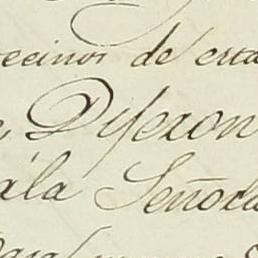 vecinos de esta
Dijeron
ála Señora